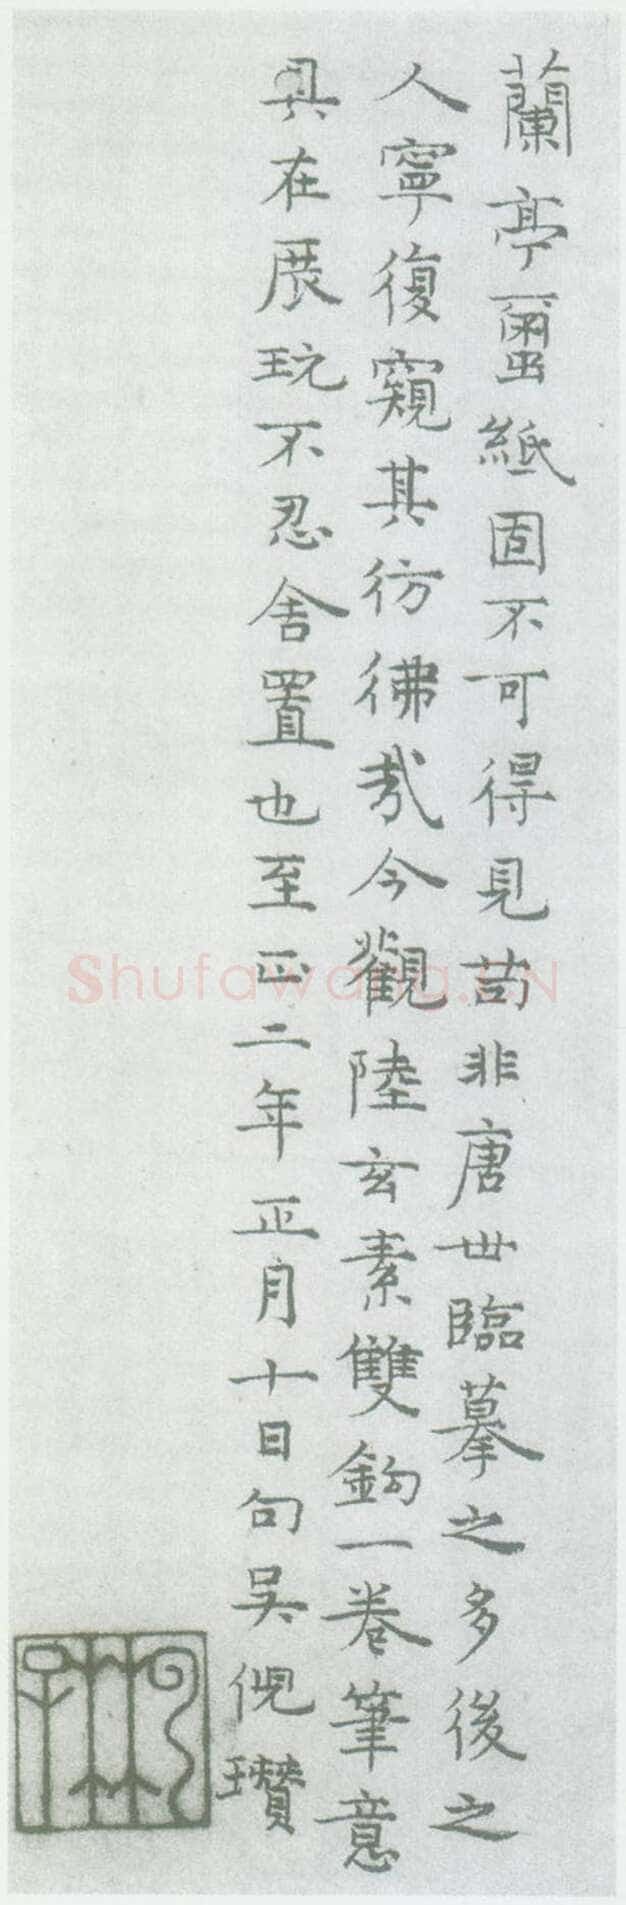 蘭亭蠒紙固不可得見苟非唐世臨摹之多後之
人寧復窺其彷彿哉今觀陸玄素雙鈎一卷筆意
具在展玩不忍舍置也至正二年正月十日句吳倪瓚
Shufawang.CN